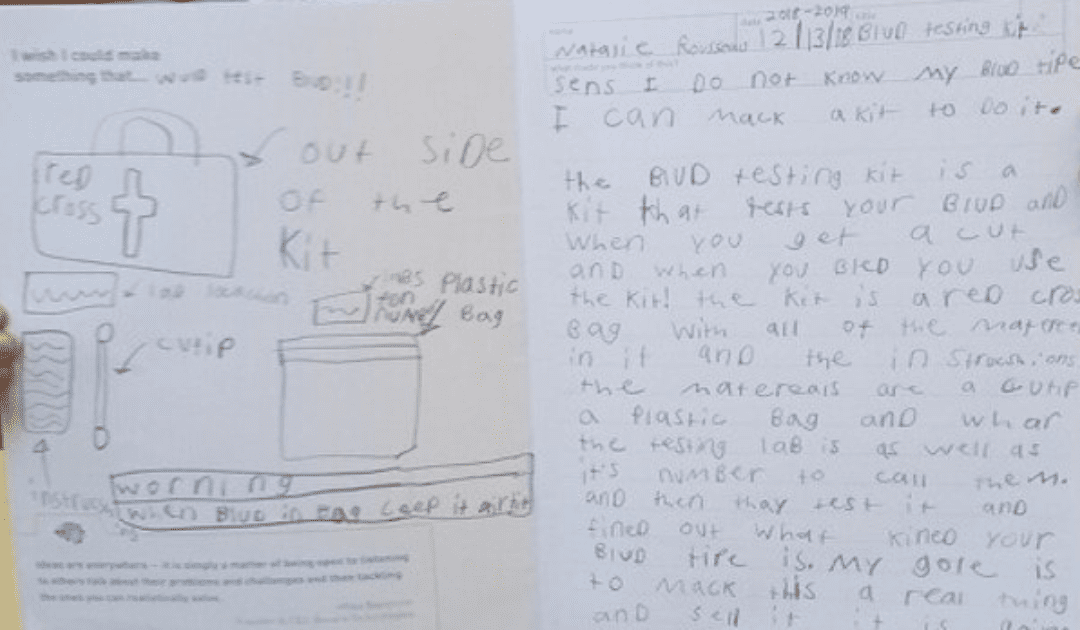 I wish I could make
something that... wuld test Blud!!!
out side
of the
Kit
red
cross
lab locashun
labs
fon
numbe
Plastic
Bag
cutip
instrucs
worning
when Blud in Bag ceep it airtit
Ideas are everywhere – it is simply a matter of being open to listening
to others talk about their problems and challenges and then tackling
the ones you can realistically solve.
2018-2019
Natalie Rousseau 12/13/18 Blud testing kit
sens I Do not know my Blud tipe
I can mack a kit to Do it.
the Blud testing kit is a
kit that tests your Blud and
when you get a cut
and when you Bled you use
the kit! the kit is a red cros
Bag with all of the materee
in it and the instrocshions
the matereals are a Qutip
a Plastic Bag and whar
the testing lab is as well as
it's number to call them.
and then thay test it and
fined out what kined your
Blud tipe is. My gole is
to mack this a real thing
and sell it it is